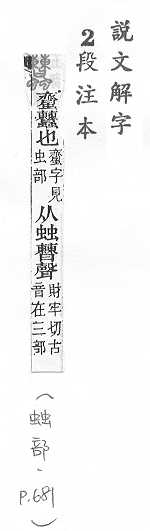 說文解字
2段注本
也 字見虫部 从䖵𣍘聲 財牢切古音在三部
(䖵部、P.681)